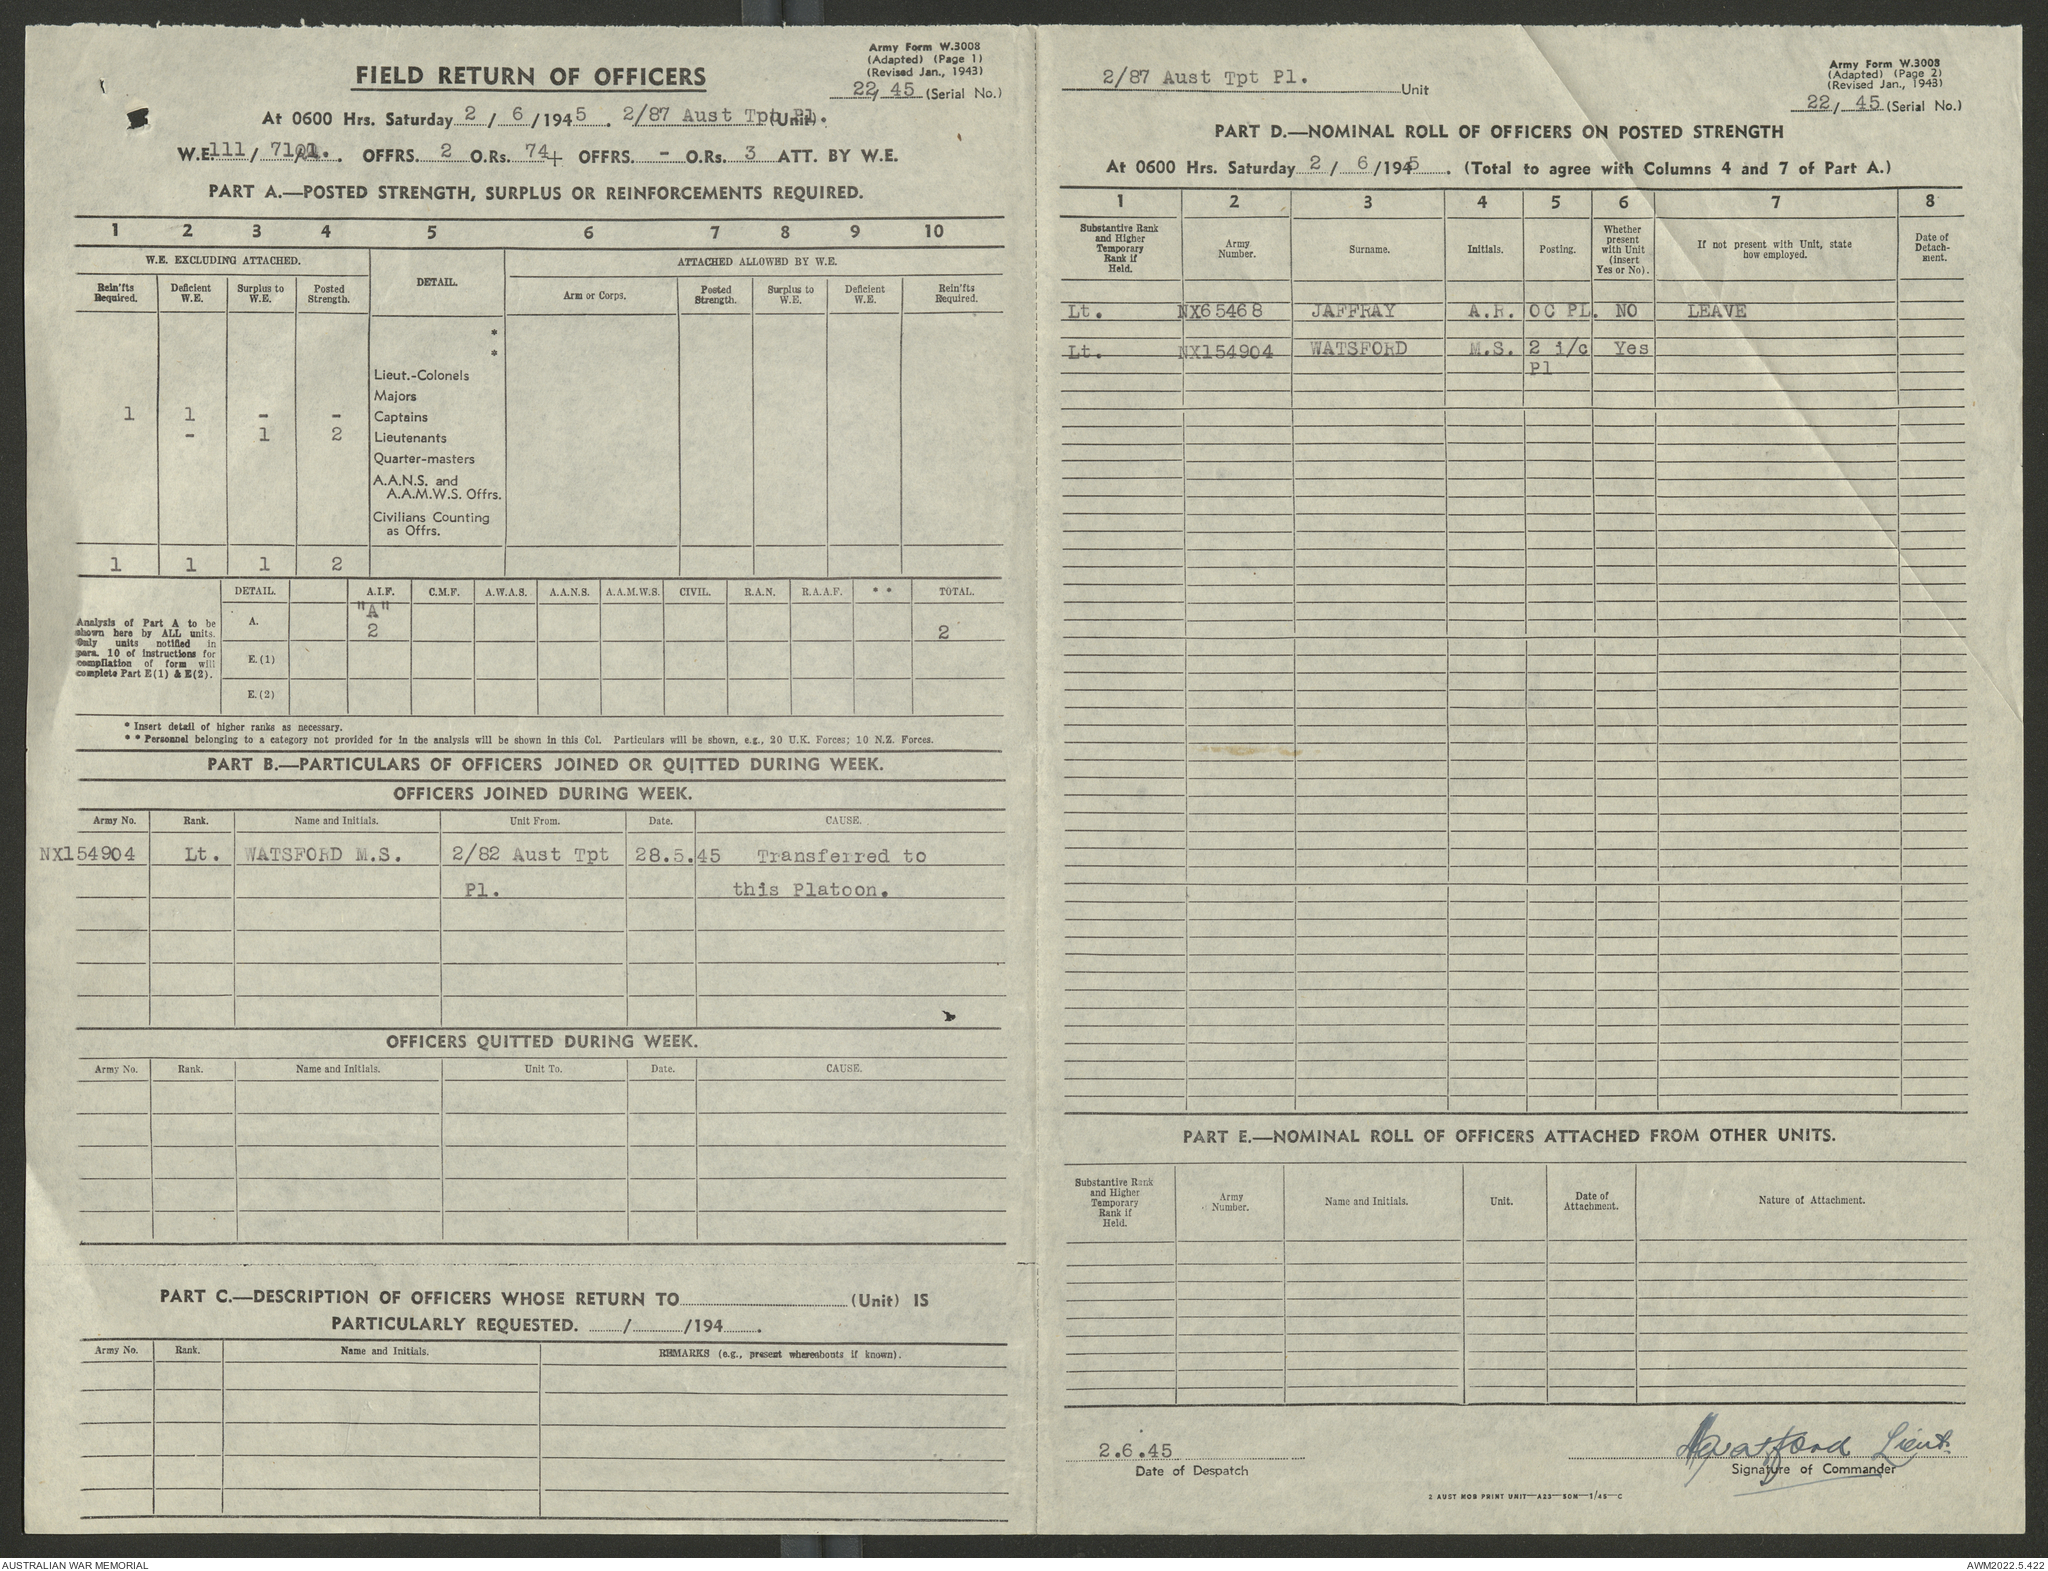 Army Form W.3008
(Adapted) (Page 1)
(Revised Jan., 1943)
22/ 45 (Serial No.)
FIELD RETURN OF OFFICERS
At 0600 Hrs. Saturday 2 / 6 /1945. 2/87 Aust Tpt Pl. (Unit).
W.E. 111/ OFFRS. 2 O.Rs. 74+ OFFRS. - O.Rs. 3 ATT. BY W.E.
PART A.—POSTED STRENGTH, SURPLUS OR REINFORCEMENTS REQUIRED.
1 2 3 4 5 6 7 8 9 10
W.E. EXCLUDING ATTACHED. DETAIL. ATTACHED ALLOWED BY W.E.
Rein'fts Required. Deficient W.E. Surplus to W.E. Posted Strength. Arm or Corps. Posted Strength. Surplus to W.E. Deficient W.E. Rein'fts Required.
*
*
Lieut.-Colonels
Majors
1 1 - - Captains
- 1 2 Lieutenants
Quarter-masters
A.A.N.S. and
A.A.M.W.S. Offrs.
Civilians Counting
as Offrs.
1 1 1 2
DETAIL. A.I.F. C.M.F. A.W.A.S. A.A.N.S. A.A.M.W.S. CIVIL. R.A.N. R.A.A.F. * * TOTAL.
Analysis of Part A to be
shown here by ALL units.
Only units notified in
para. 10 of instructions for
compilation of form will
complete Part E(1) & E(2).
"A"
A. 2 2
E.(1)
E.(2)
* Insert detail of higher ranks as necessary.
* * Personnel belonging to a category not provided for in the analysis will be shown in this Col. Particulars will be shown, e.g., 20 U.K. Forces; 10 N.Z. Forces.
PART B.—PARTICULARS OF OFFICERS JOINED OR QUITTED DURING WEEK.
OFFICERS JOINED DURING WEEK.
Army No. Rank. Name and Initials. Unit From. Date. CAUSE.
NX154904 Lt. WATSFORD M.S. 2/82 Aust Tpt 28.5.45 Transferred to
Pl. this Platoon.
OFFICERS QUITTED DURING WEEK.
Army No. Rank. Name and Initials. Unit To. Date. CAUSE.
PART C.—DESCRIPTION OF OFFICERS WHOSE RETURN TO (Unit) IS
PARTICULARLY REQUESTED. / /194 .
Army No. Rank. Name and Initials. REMARKS (e.g., present whereabouts if known).
2/87 Aust Tpt Pl. Unit
Army Form W.3008
(Adapted) (Page 2)
(Revised Jan., 1943)
22/ 45 (Serial No.)
PART D.—NOMINAL ROLL OF OFFICERS ON POSTED STRENGTH
At 0600 Hrs. Saturday 2 / 6 /1945 . (Total to agree with Columns 4 and 7 of Part A.)
1 2 3 4 5 6 7 8
Substantive Rank and Higher Temporary Rank if Held. Army Number. Surname. Initials. Posting. Whether present with Unit (insert Yes or No). If not present with Unit, state how employed. Date of Detach-ment.
Lt. NX65468 JAFFRAY A.R. OC PL. NO LEAVE
Lt. NX154904 WATSFORD M.S. 2 i/c Yes
Pl
PART E.—NOMINAL ROLL OF OFFICERS ATTACHED FROM OTHER UNITS.
Substantive Rank and Higher Temporary Rank if Held. Army Number. Name and Initials. Unit. Date of Attachment. Nature of Attachment.
2.6.45 Watsford Lieut.
Date of Despatch Signature of Commander
2 AUST MOB PRINT UNIT—A23—50M—1/45—C
AUSTRALIAN WAR MEMORIAL AWM2022.5.422